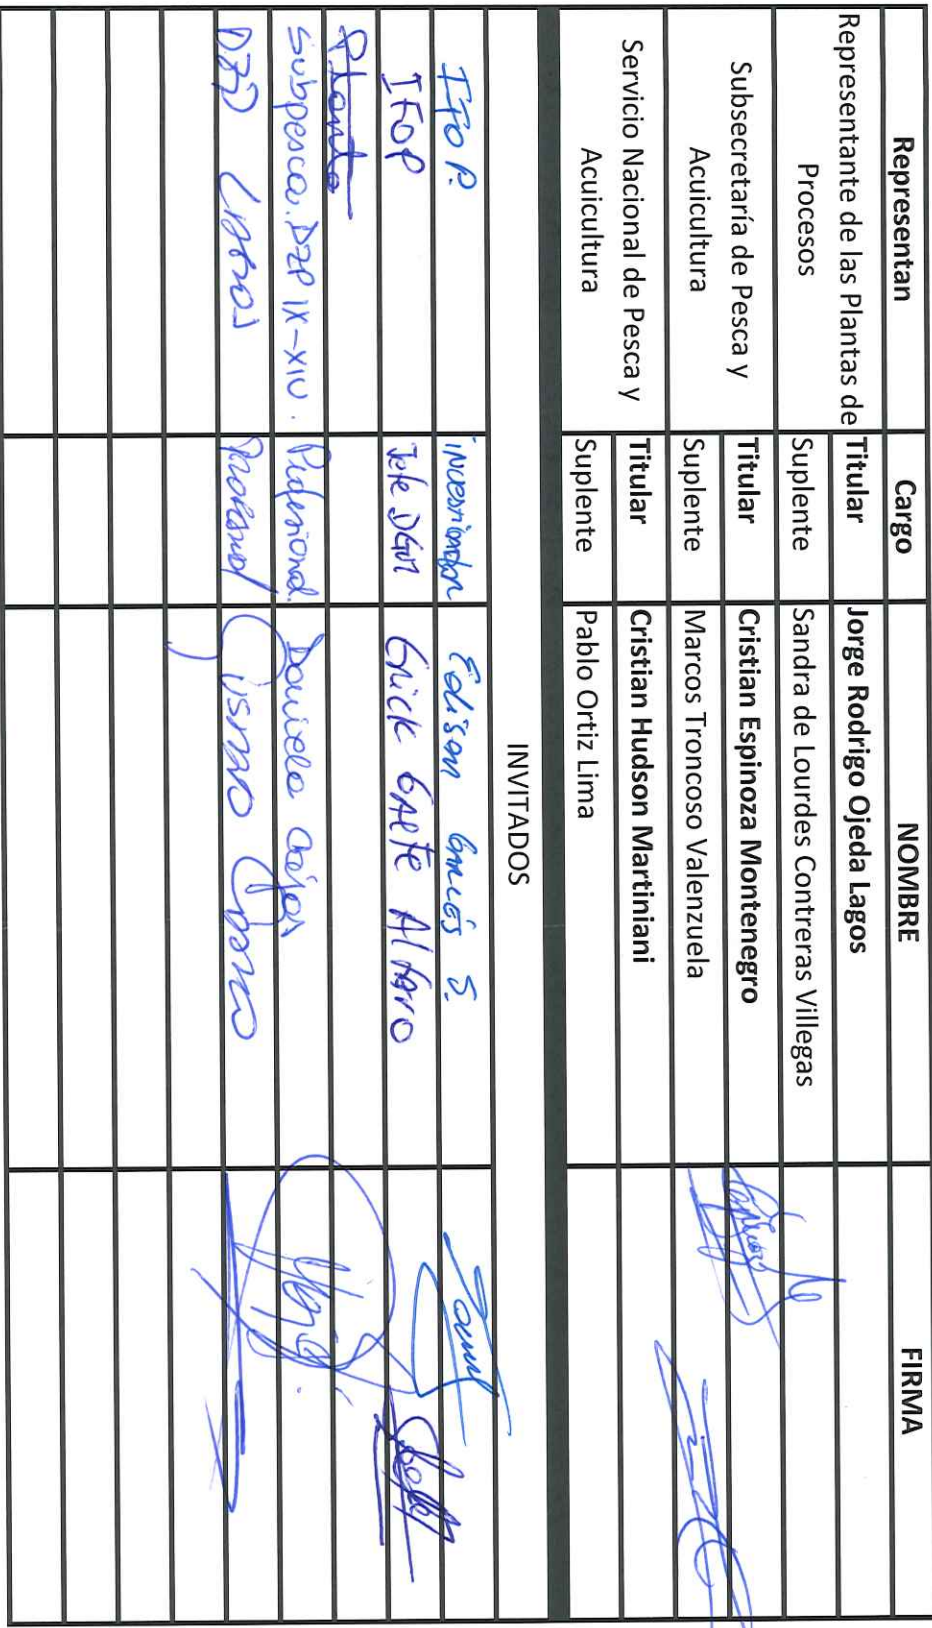 Representan Cargo NOMBRE FIRMA
Representante de las Plantas de Procesos Titular Jorge Rodrigo Ojeda Lagos
Suplente Sandra de Lourdes Contreras Villegas
Subsecretaría de Pesca y Acuicultura Titular Cristian Espinoza Montenegro
Suplente Marcos Troncoso Valenzuela
Servicio Nacional de Pesca y Acuicultura Titular Cristian Hudson Martiniani
Suplente Pablo Ortiz Lima
INVITADOS
IFOP. investigador Edison Garcés S.
IFOP Jefe Erick Gaete Alfaro
Subpesca. DZP IX-XIV. Profesional. Daniela
Lagos Profesional